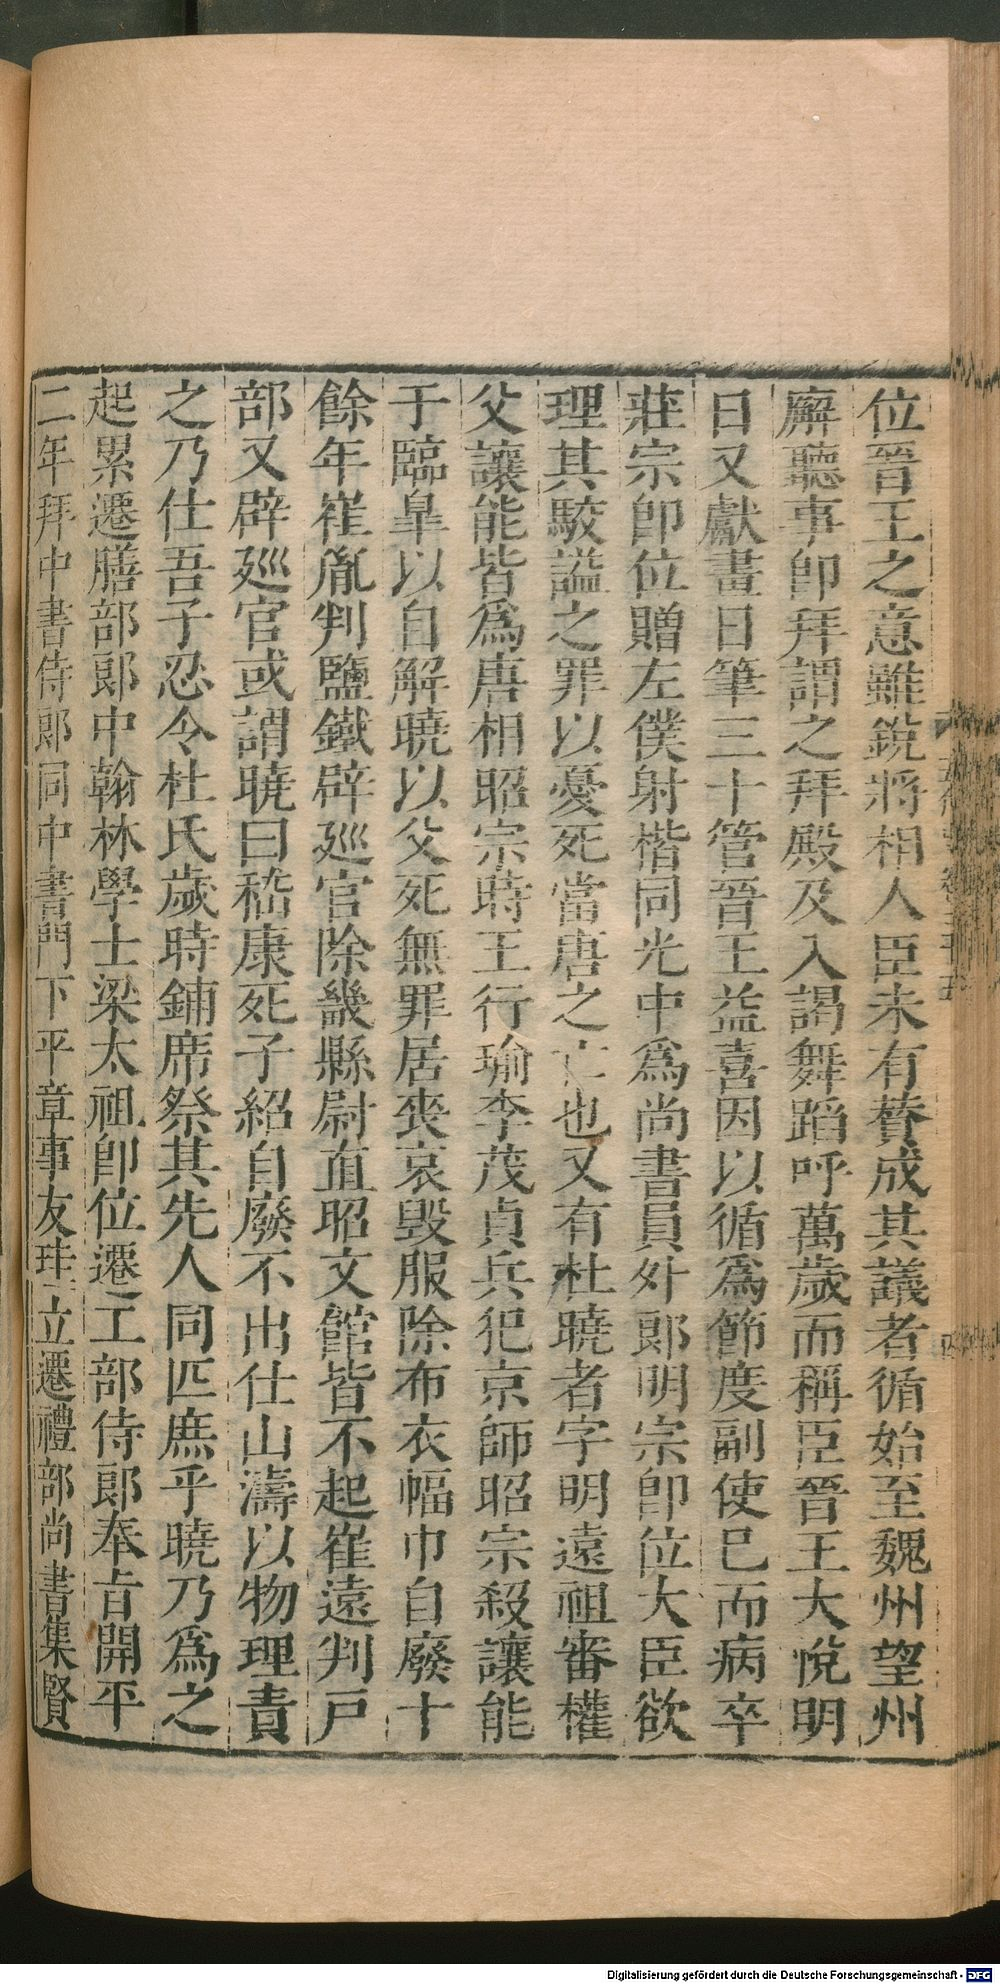 位晉王之意雖銳將相人臣未有賛成其議者循始至魏州望州
廨聽事卽拜謂之拜殿及入謁舞蹈呼萬歲而稱臣晉王大悅明
日又獻畫日筆三十管晉王益喜因以循爲節度副使已而病卒
莊宗卽位贈左僕射楷同光中爲尚書員外郞明宗卽位大臣欲
理其駮諡之罪以憂死當唐之亡也又有杜曉者字明遠祖審權
父讓能皆爲唐相昭宗時王行瑜李茂貞兵犯京師昭宗殺讓能
于臨臯以自解曉以父死無罪居喪哀毀服除布衣幅巾自廢十
餘年崔胤判鹽鐵辟廵官除畿縣尉直昭文館皆不起崔遠判戸
部又辟廵官或謂曉曰嵇康死子紹自廢不出仕山濤以物理責
之乃仕吾子忍令杜氏歲時鋪席祭其先人同匹庶乎曉乃爲之
起累遷膳部郞中翰林學士梁太祖卽位遷工部侍郞奉旨開平
二年拜中書侍郞同中書門下平章事友珪立遷禮部尚書集賢
Digitalisierung gefördert durch die Deutsche Forschungsgemeinschaft - DFG